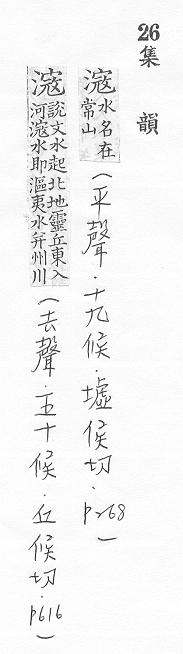 26集韻
滱水名在常山(平聲.十九候.墟侯切.p268)
滱說文水起北地靈丘東入河滱水即漚夷水并州川(去聲.五十候.丘候切.p616)